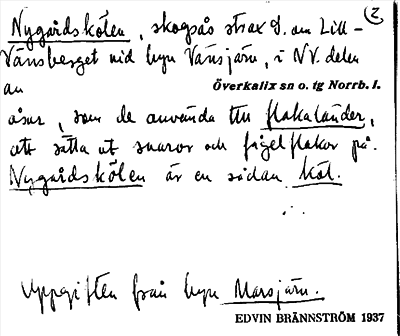 Nygårdskölen, skogsås strax S. om Lill-
Vänsberget vid byn Vänsjärv, i NV. delen
av Överkalix sn o. tg Norrb. l.
åsar, som de använda till flakaländer,
att sätta ut snaror och fågelflakor på.
Nygårdskölen är en sådan köl.
Uppgiften från byn Marsjärv.
EDVIN BRÄNNSTRÖM 1937